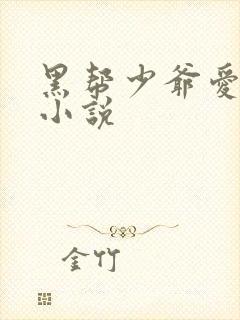 黑帮少爷爱
小說
金竹